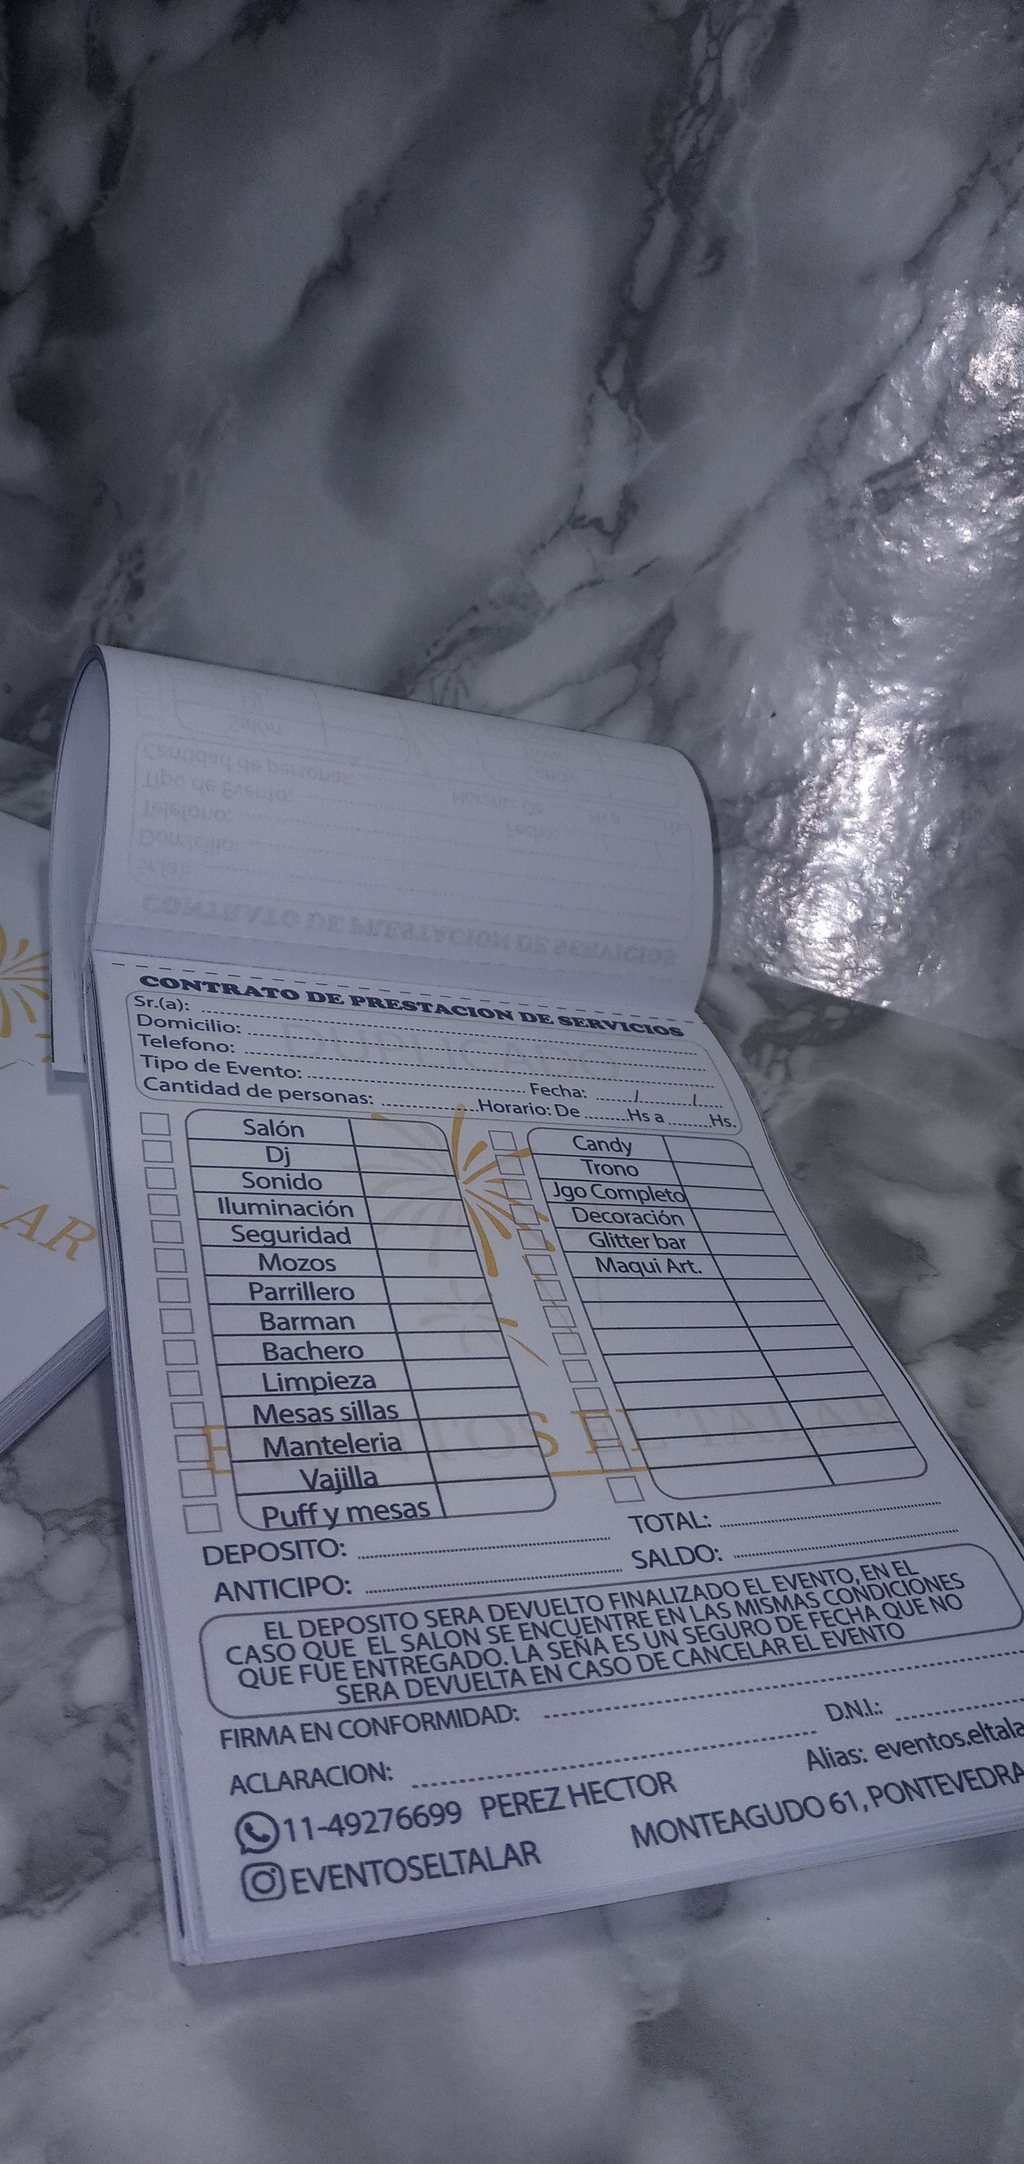 CONTRATO DE PRESTACION DE SERVICIOS
Sr.(a):
Domicilio:
Telefono:
Tipo de Evento: Fecha: / /
Cantidad de personas: Horario: De Hs a Hs.
DUPLICADO
Salón
Dj
Sonido
Iluminación
Seguridad
Mozos
Parrillero
Barman
Bachero
Limpieza
Mesas sillas
Manteleria
Vajilla
Puff y mesas
Candy
Trono
Jgo Completo
Decoración
Glitter bar
Maqui Art.
EVENTOS EL TALAR
DEPOSITO: TOTAL:
ANTICIPO: SALDO:
EL DEPOSITO SERA DEVUELTO FINALIZADO EL EVENTO, EN EL
CASO QUE EL SALON SE ENCUENTRE EN LAS MISMAS CONDICIONES
QUE FUE ENTREGADO. LA SEÑA ES UN SEGURO DE FECHA QUE NO
SERA DEVUELTA EN CASO DE CANCELAR EL EVENTO
FIRMA EN CONFORMIDAD:
ACLARACION: D.N.I.:
11-49276699 PEREZ HECTOR Alias: eventos.eltala
EVENTOSELTALAR MONTEAGUDO 61, PONTEVEDRA
LAR